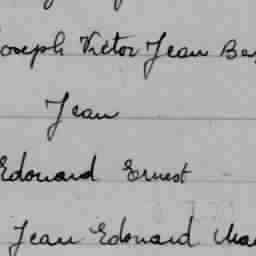 Joseph Victor Jean Ba
Jean
Edouard Ernest
Jean Edouard